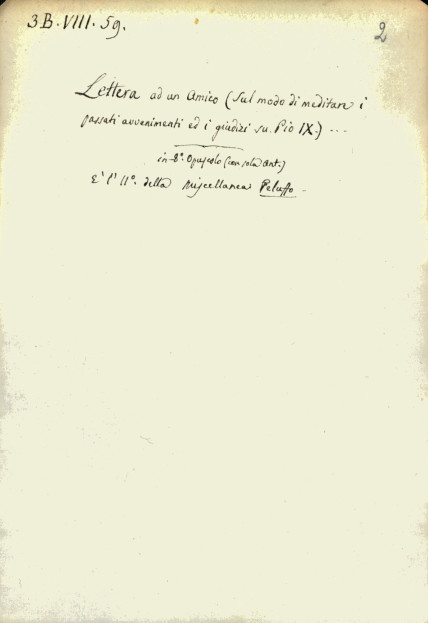 3.B.VIII.59.
2
Lettera ad un Amico (Sul modo di meditare i
passati avvenimenti ed i giudizi su Pio IX.) ---
in 8°. Opuscolo (con sola ant.)
E' l' 11°. della Miscellanea Peluffo.